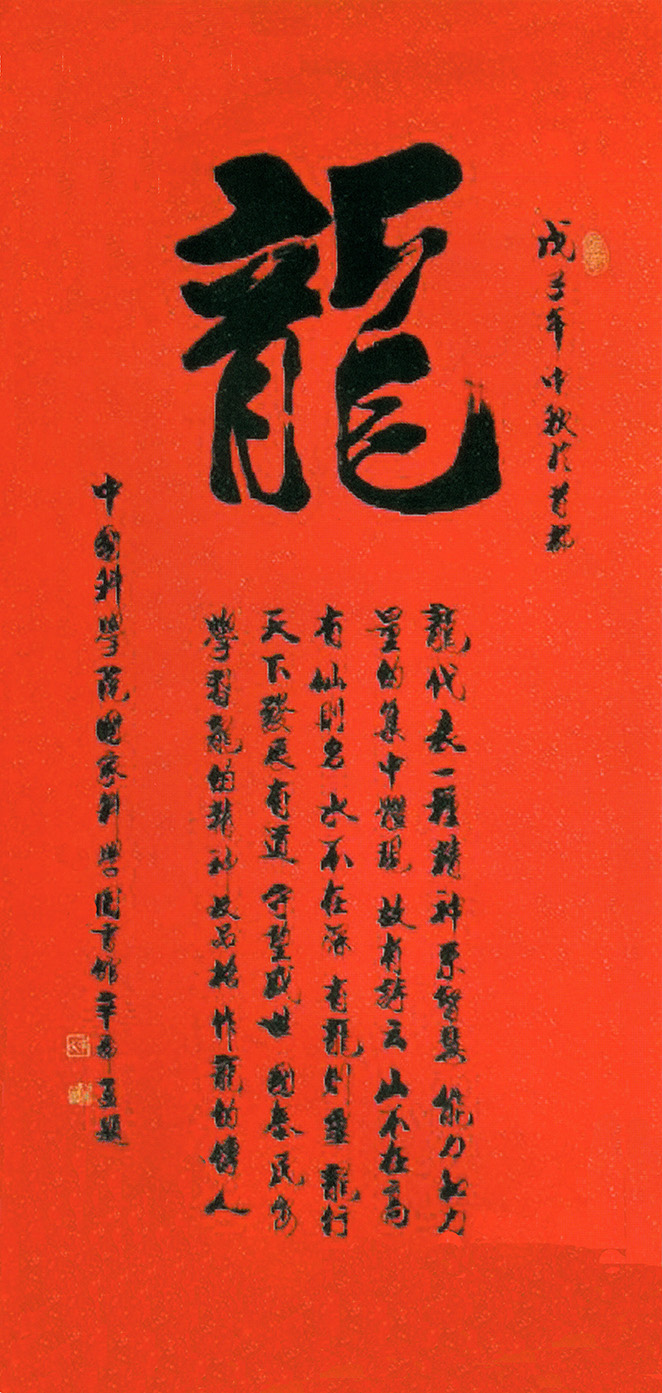 戊子年中秋於首都
龍
龍代表一種精神系智慧 能力和力
量的集中體現 故有詩云 山不在高
有仙則名 水不在深 有龍則靈 龍行
天下發展有道 守望盛世 國泰民安
學習龍的精神及品格 作龍的傳人
中國科學院國家科學圖書館辛希孟題